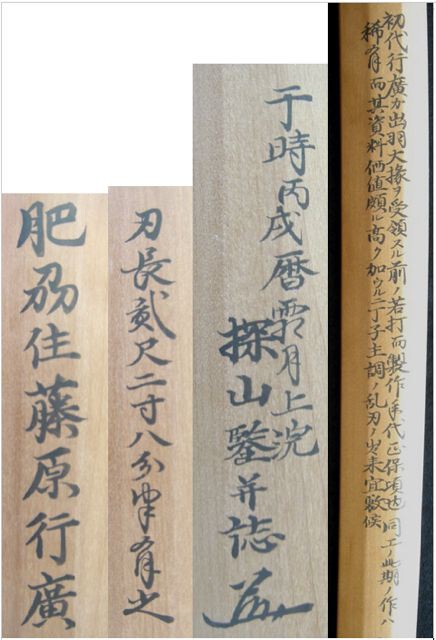 肥刕住藤原行廣
刃長貳尺二寸八分半有之
于時丙戌暦霜月上浣
探山鑒并誌
初代行廣ガ出羽大掾ヲ受領スル前ノ若打而製作年代正保頃也 同工ノ此期ノ作ハ
稀有而其資料価値頗ル高ク加ウルニ丁子主調ノ乱刃ノ出来宜敷候